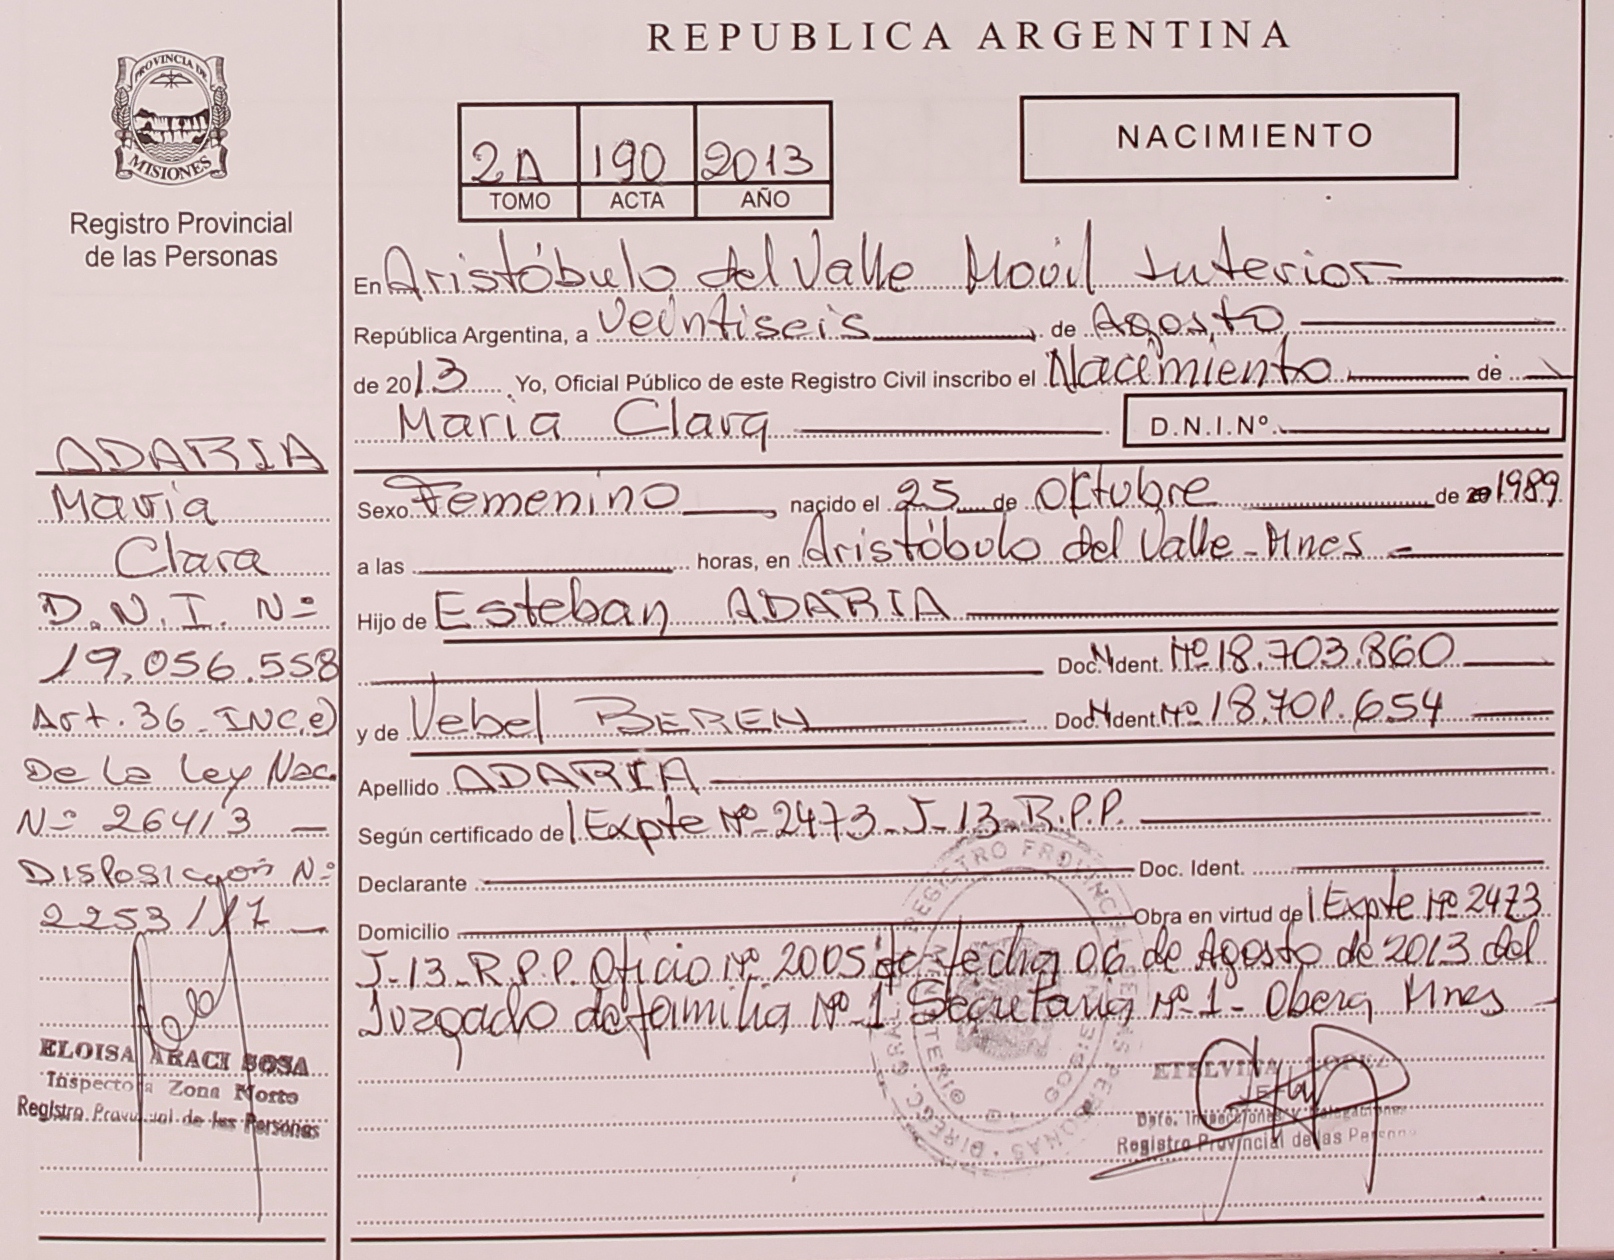 REPUBLICA ARGENTINA
PROVINCIA DE
MISIONES
Registro Provincial
de las Personas
2A 190 2013
TOMO ACTA AÑO
NACIMIENTO
En Aristóbulo del Valle Movil Interior
República Argentina, a Veintiseis de Agosto
de 2013 Yo, Oficial Público de este Registro Civil inscribo el Nacimiento de
Maria Clara D.N.I.Nº
Sexo Femenino nacido el 25 de Octubre de 1989
a las horas, en Aristóbulo del Valle - Mnes -
Hijo de Esteban ADARIA
Doc. Ident. Nº 18.703.860
y de Vebel BEREN Doc. Ident. Nº 18.701.654
Apellido ADARIA
Según certificado de Expte Nº 2473 - J - 13 - R.P.P.
Declarante Doc. Ident.
Domicilio Obra en virtud de Expte Nº 2473
J-13-R.P.P. Oficio Nº 2005 de fecha 06 de Agosto de 2013 del
Juzgado de familia Nº 1 Secretaria Nº 1 - Obera Mnes -
ETELVINA LOPEZ
JEFA
Dpto. Inspecciones y Delegaciones
Registro Provincial de las Personas
ADARIA
Maria
Clara
D.N.I. Nº
19.056.558
Art. 36 - INC.e)
De la ley Nac.
Nº 26413 -
Disposición Nº
2253/17 -
ELOISA ARACI SOSA
Inspectora Zona Norte
Registro Provincial de las Personas